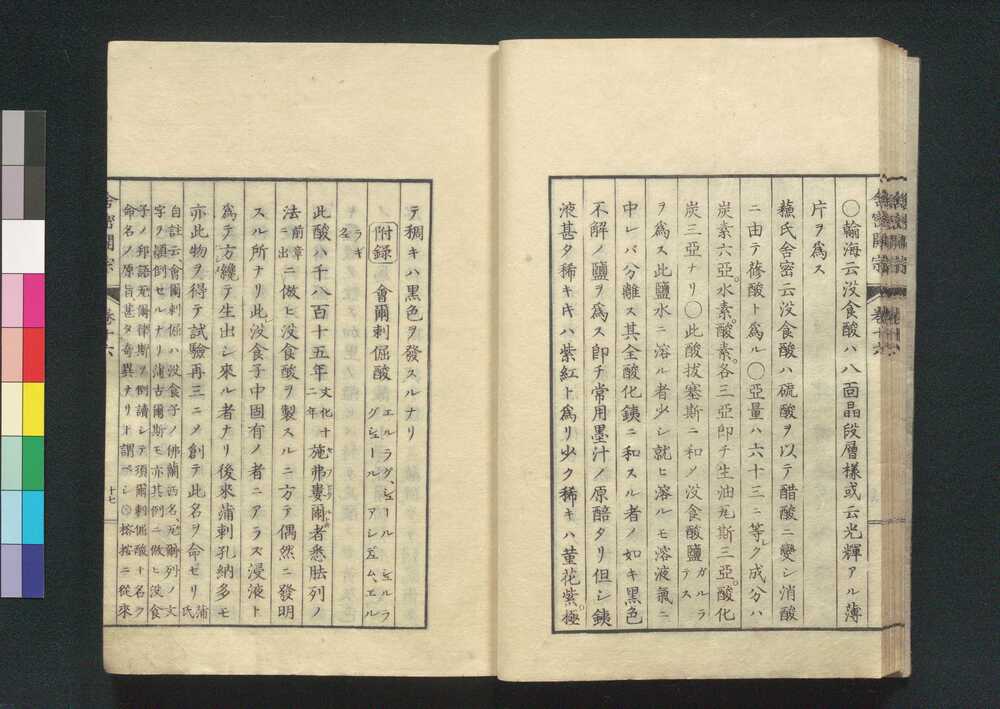 〇瀚海云沒食酸ハ八面晶段層樣或云光輝アル薄
片ヲ爲ス
蘓氏舎密云沒食酸ハ硫酸ヲ以テ醋酸ニ變シ消酸
ニ由テ蓚酸ト爲ル〇亞量ハ六十三ニ等シク成分ハ
炭素六亞。水素。酸素。各三亞即チ生油瓦斯三亞。酸化
炭三亞ナリ〇此酸抜塞斯ニ和ノ沒食酸鹽ガルラテス
ヲ爲ス此鹽水ニ溶ル者少シ就ヒ溶ルモ溶液氣ニ
中レバ分離ス其全酸化銕ニ和スル者ノ如キ黒色
不解ノ鹽ヲ爲ス即チ常用墨汁ノ原醅タリ但シ銕
液甚タ稀キキハ紫紅ト爲リ少ク稀キハ菫花紫。極
テ稠キハ黒色ヲ發スルナリ
附録 會爾剌倔酸
此酸ハ千八百十五年文化十二年施弗婁爾者悉胠列ノ
法前章ニ出ニ倣ヒ沒食酸ヲ製スルニ方テ偶然ニ發明
スル所ナリ此沒食子中固有ノ者ニアラス浸液ト
爲テ方纔テ生出シ來ル者ナリ後來蒲剌孔納多モ
亦此物ヲ得テ試驗再三ニメ創テ此名ヲ命セリ蒲氏
自註云會爾剌倔ハ沒食子ノ佛蘭西名瓦爾列ノ文
字ヲ顚倒セルナリ蒲古爾斯モ亦其例ニ倣ヒ沒食
子ノ郛語瓦爾律斯ヲ倒讀シテ須爾剌倔酸ト名ク
命名ノ原旨甚タ奇異ナリト謂ベシ〇榕菴ニ從來
舎密開宗 巻十六 十七